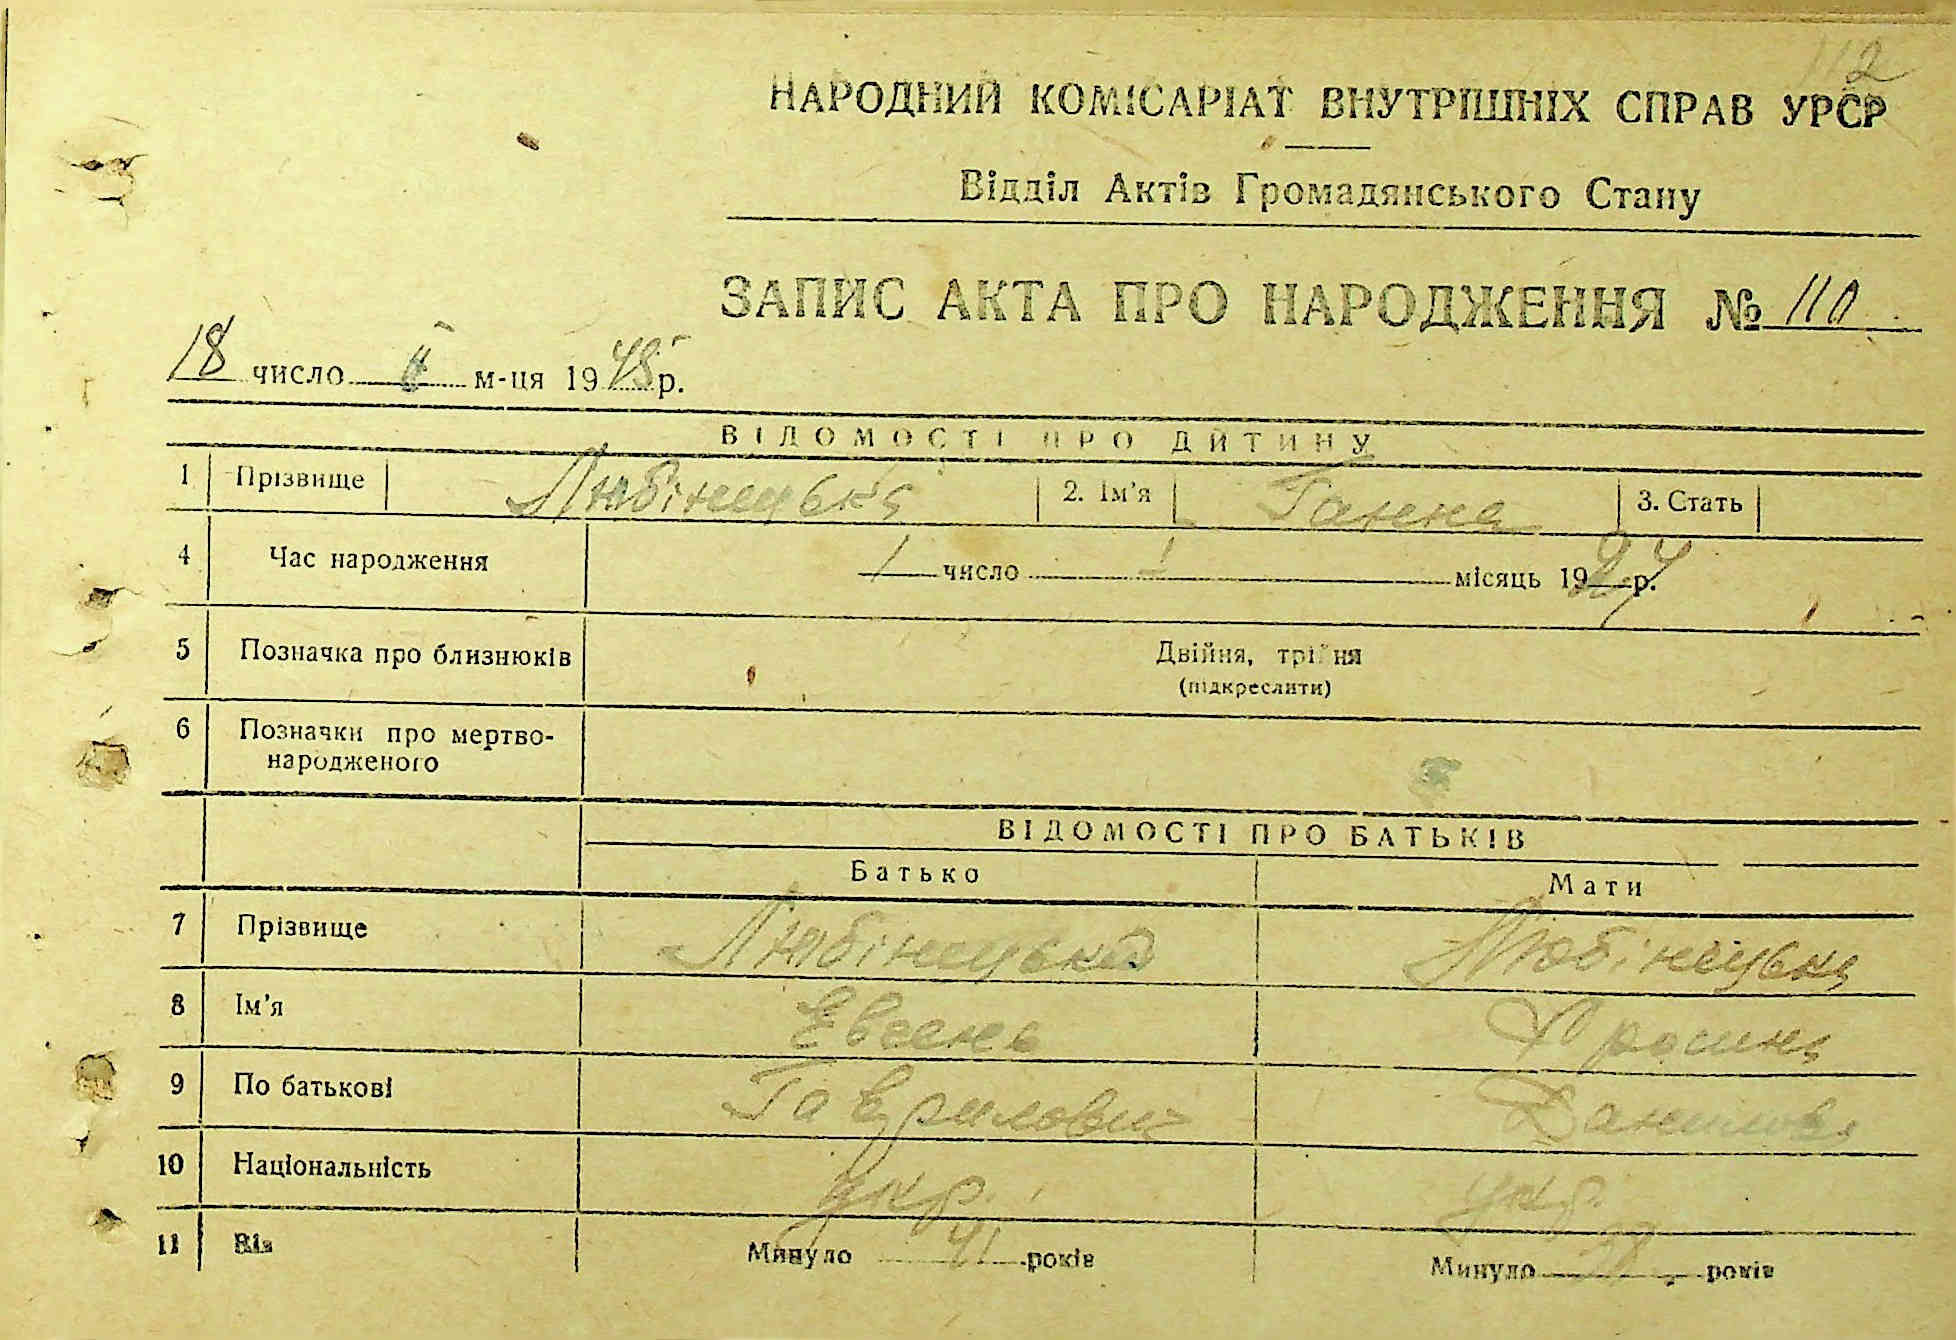 112
НАРОДНИЙ КОМІСАРІАТ ВНУТРІШНІХ СПРАВ УРСР
Відділ Актів Громадянського Стану
ЗАПИС АКТА ПРО НАРОДЖЕННЯ № 110
18 число II м-ця 1945 р.
ВІДОМОСТІ ПРО ДИТИНУ
1 Прізвище Любінецька 2. Ім'я Ганна 3. Стать
4 Час народження 1 число 1 місяць 1924 р.
5 Позначка про близнюків Двійня, трійня
(підкреслити)
6 Позначки про мертво-
народженого
ВІДОМОСТІ ПРО БАТЬКІВ
Батько Мати
7 Прізвище Любінецький Любінецька
8 Ім'я Евгень
9 По батькові Гаврилович Данилов.
10 Національність укр. укр.
11 Вік Минуло 41 років Минуло 38 років